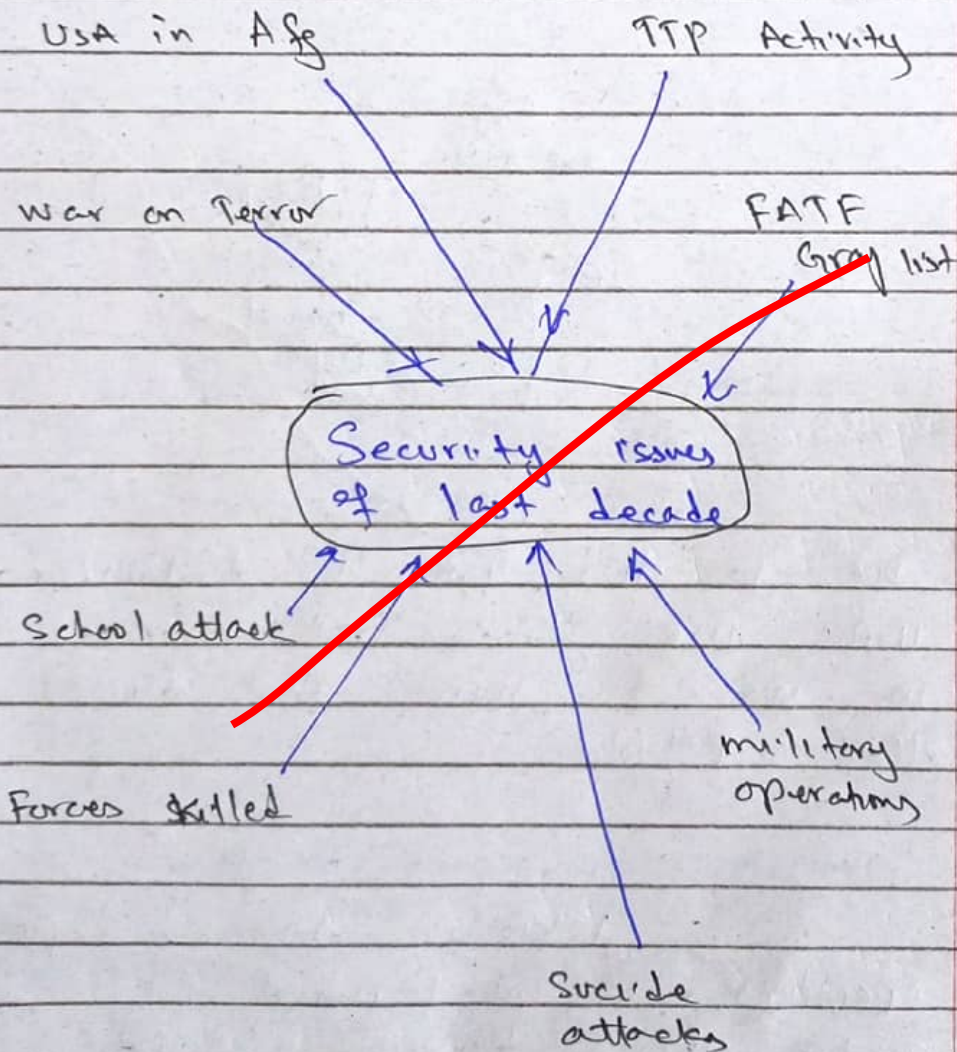 USA in Afg
TTP Activity
war on Terror
FATF
Gray list
Security issues
of last decade
School attack
military
operations
Forces killed
Sucide
attacks